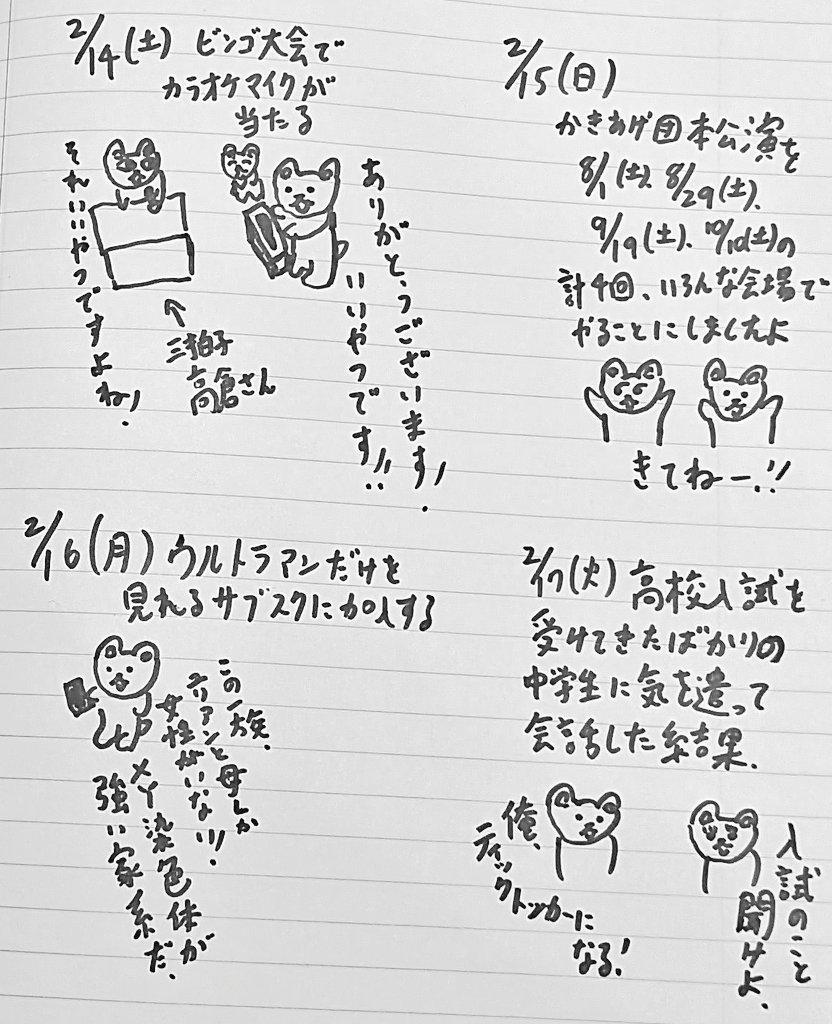 2/14(土) ビンゴ大会で
カラオケマイクが
当たる
それいいやつですよね!
↑
三拍子
高倉さん
ありがとうございます!
いいやつです!!
2/15(日)
かきあげ団本公演を
8/1(土)、8/29(土)、
9/19(土)、10/10(土)の
計4回、いろんな会場で
やることにしましたよ
きてねー!!
2/16(月) ウルトラマンだけを
見れるサブスクに加入する
この一族、
ユリアンと母しか
女性がいない!!
XY染色体が
強い家系だ、
2/17(火) 高校入試を
受けてきたばかりの
中学生に気を遣って
会話した結果、
俺、
ティックトッカーに
なる!
入試のこと
聞けよ、